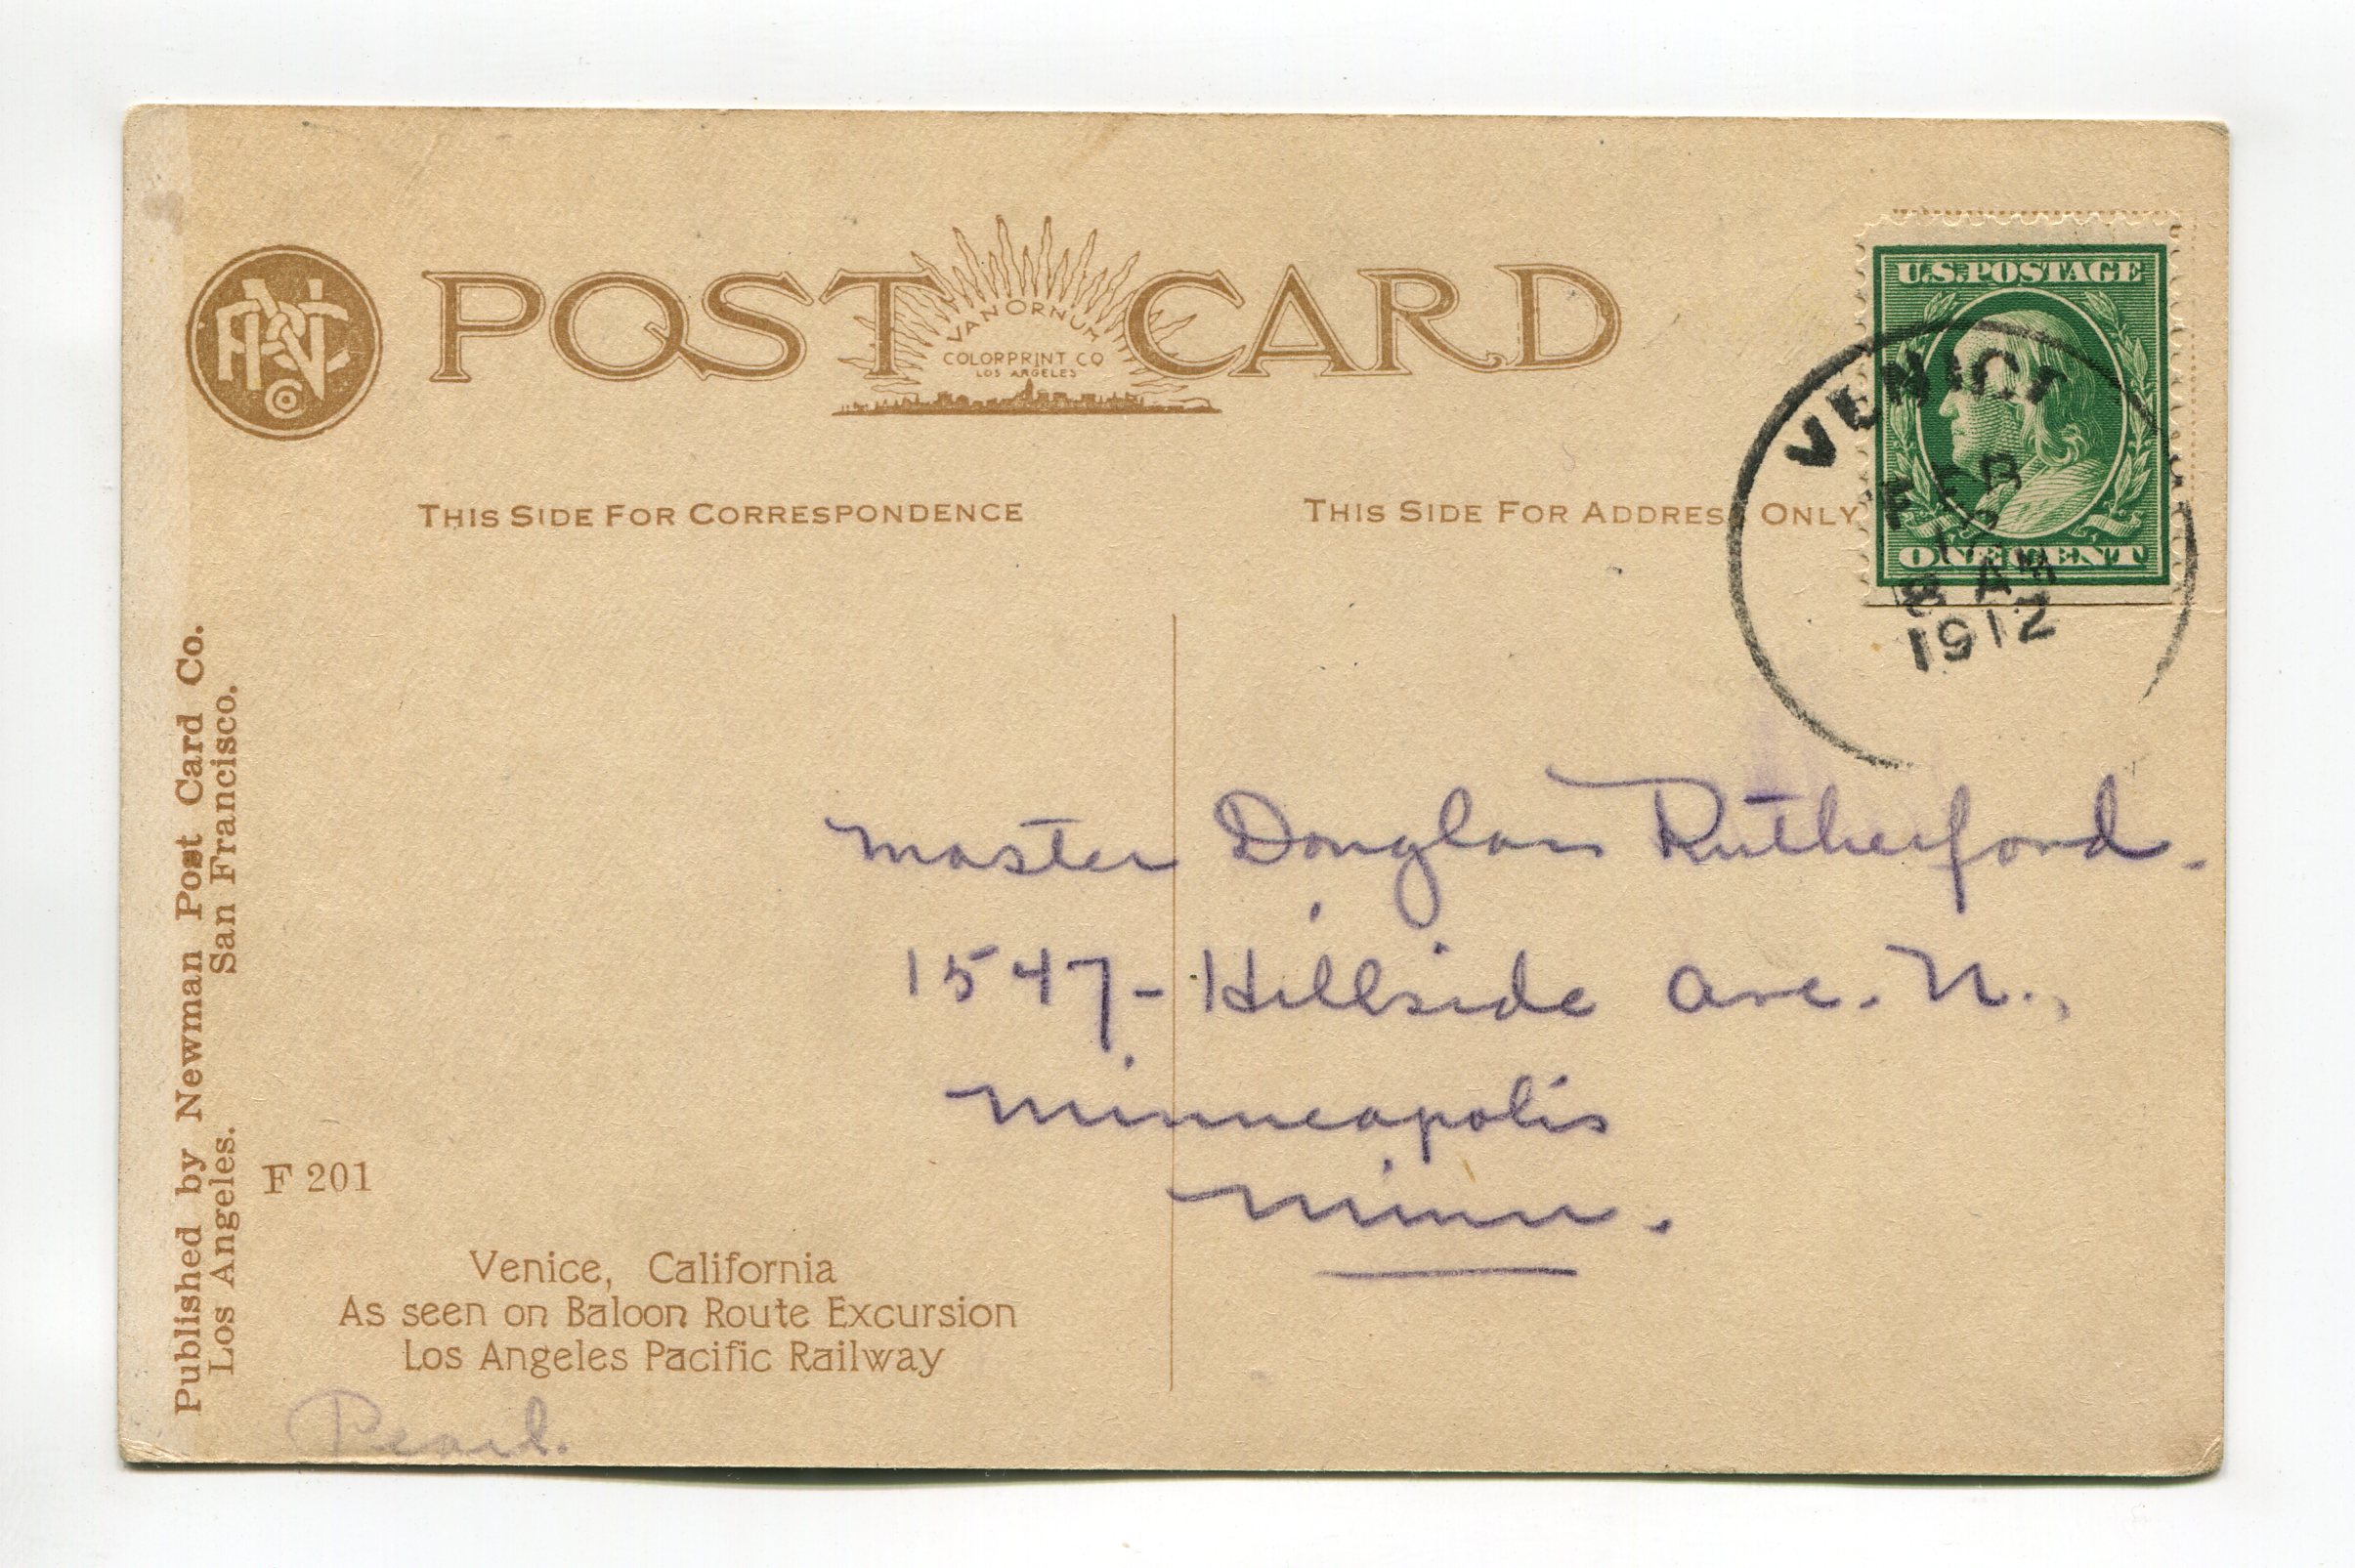 POST CARD
VAN ORNUM
COLORPRINT CO
LOS ANGELES
THIS SIDE FOR CORRESPONDENCE
THIS SIDE FOR ADDRESS ONLY
U.S. POSTAGE
ONE CENT
VENICE
FEB
8 AM
1912
Master Douglas Rutherford.
1547 - Hillside Ave. N.,
Minneapolis
Minn.
Published by Newman Post Card Co.
Los Angeles. San Francisco.
F 201
Venice, California
As seen on Baloon Route Excursion
Los Angeles Pacific Railway
Pearl.